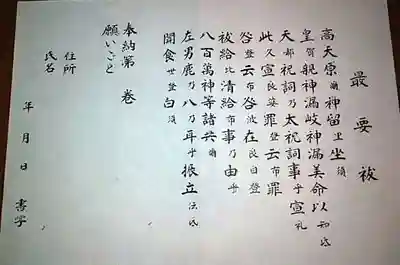 最要祓
高天原爾神留里坐須
皇賀親神漏岐神漏美命以知氐
天都祝詞乃太祝詞事乎宣礼
此久宣良婆罪登云布罪
咎登云布咎波在良自登
祓給比清給布事乃由乎
八百萬神等諸共爾
左男鹿乃八乃耳乎振立氐
聞食世登白須
奉納第 巻
願いごと
住所
氏名
年 月 日 書写